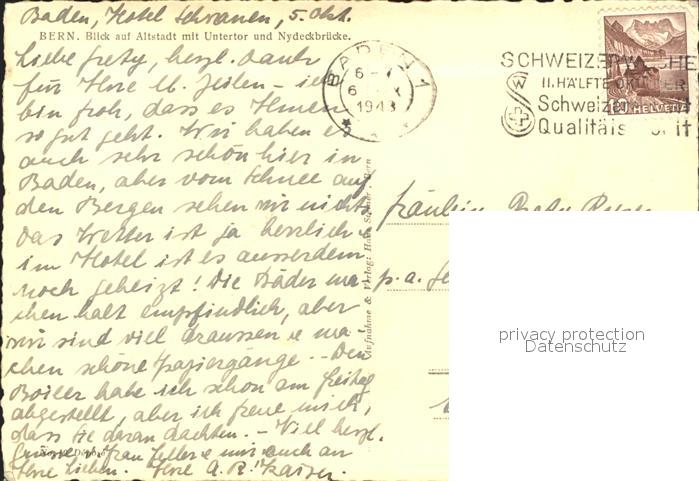 Baden, Hotel Schwanen, 5. Okt.
BERN. Blick auf Altstadt mit Untertor und Nydeckbrücke.
Liebe Grety, herzl. Dank
für Ihre lb. Zeilen - ich
bin froh, dass es Ihnen
so gut geht. Wir haben es
auch sehr schön hier in
Baden, aber vom Schnee auf
den Bergen sehen wir nichts
Das Wetter ist ja herrlich &
im Hotel ist es ausserdem
noch geheizt! Die Bäder ma-
chen halt empfindlich, aber
wir sind viel draussen & ma-
chen schöne Spaziergänge. - Den
Boiler habe ich schon am Freitag
abgestellt, aber ich freue mich,
dass Sie daran dachten. - Viel herzl.
Grüsse, Frau Feller & mir auch an
Ihre Lieben. Ihre A. R. Kaiser.
BADEN 1
6 - X
1943
SCHWEIZERWOCHE
II. HÄLFTE OKTOBER
Schweizer
Qualitäts
20 HELVETIA
Aufnahme & Verlag: Bern
Fräulein
p. a.
privacy protection
Datenschutz